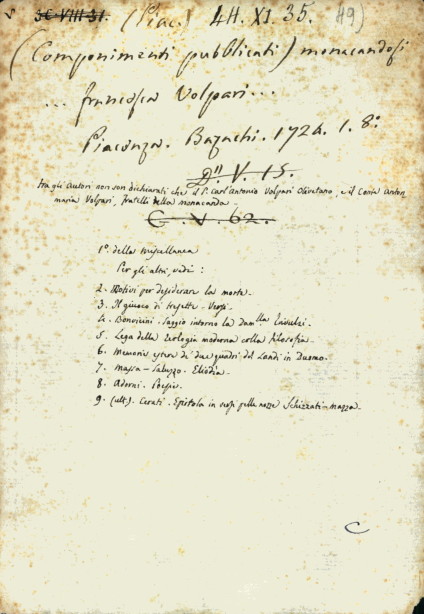 3C.VIII.31. (Piac.) 4H. XI. 35. 49)
(Componimenti pubblicati) monacandosi
... Francesca Volpari ...
Piacenza. Bazachi. 1726. 1. 8°
D". V. 15.
fra gli autori non son dichiarati che il P. Carl'Antonio Volpari Olivetano, e il Conte Anton
maria Volpari, fratelli della monacanda.
C. V. 62.
1°. della miscellanea
Per gli altri, vedi :
2. Motivi per desiderare la morte.
3. Il giuoco di tresette - Versi.
4. Bonvicini. Saggio intorno la Dam.lla Trivulzi.
5. Lega della Teologia moderna colla filosofia.
6. Memorie istor. di due quadri del Landi in Duomo.
7. Massa - Saluzzo. Eliodia.
8. Adorni. Poesie.
9. (ult.) Cerati. Epistola in versi nelle nozze Schizzati - Mazza.
C